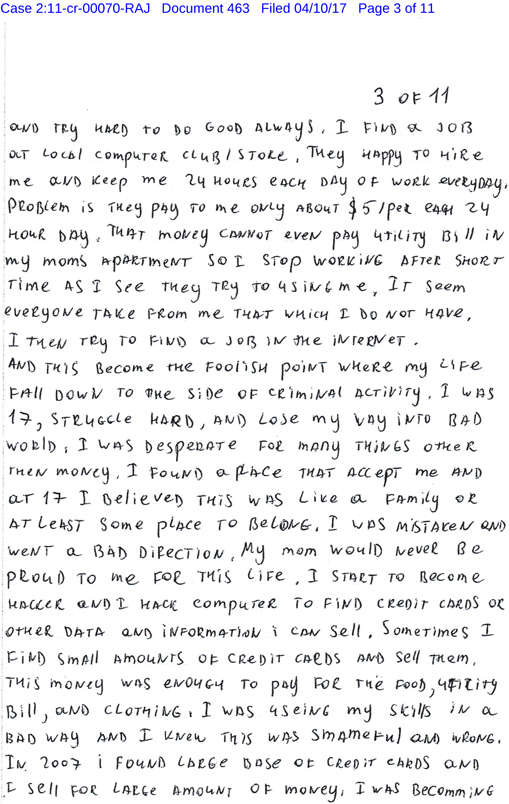 Case 2:11-cr-00070-RAJ Document 463 Filed 04/10/17 Page 3 of 11
3 OF 11
AND TRY HARD TO DO GOOD ALWAYS. I FIND a JOB
aT LOCAL COMPUTER CLUB/STORE. They HAPPY TO HIRE
me AND Keep me 24 HOURS EACH DAY OF WORK everyDAY.
PROBLEM is THEY PAY TO me ONLY ABOUT $5/PER EACH 24
HOUR DAY. THAT MONEY CANNOT eveN PAY UTILITY Bill iN
my moms APARTMENT SO I STOP WORKING AFTER SHORT
Time AS I See THEY TRY TO USING me, IT Seem
everyONE TAKE FROM me THAT WHICH I DO NOT HAVE.
I THEN TRY TO FIND a JOB IN the iNTERNET.
AND THIS Become the FOOLISH POINT WHERE my LIFE
FALL DOWN TO THE SIDE OF CRIMINAL ACTIVITY. I WAS
17, STRUGGLE HARD, AND LOSE my WAY INTO BAD
WORLD; I WAS DESPERATE FOR MANY THINGS OTHER
THEN money. I FOUND a PLACE THAT ACCEPT me AND
aT 17 I Believed THIS WAS LIKE a FAMILY OR
AT LEAST Some place TO BELONG. I WAS MISTAKEN AND
WENT a BAD DIRECTION. My mom WOULD NEVER Be
PROUD TO me FOR THIS LIFE. I START TO BECOME
HACCER AND I HACK COMPUTER TO FIND CREDIT CARDS OR
OTHER DATA AND INFORMATION i CAN Sell. Sometimes I
FIND SMALL AMOUNTS OF CREDIT CARDS AND Sell THEM.
THIS money WAS ENOUGH TO PAY FOR THE FOOD, UTILITY
Bill, AND CLOTHING. I WAS USEING my SKills IN a
BAD WAY AND I KNEW THIS WAS SHAMEFUL AND WRONG.
IN 2007 i FOUND LARGE BASE OF CREDIT CARDS AND
I SELL FOR LARGE AMOUNT OF MONEY. I WAS BECOMMING